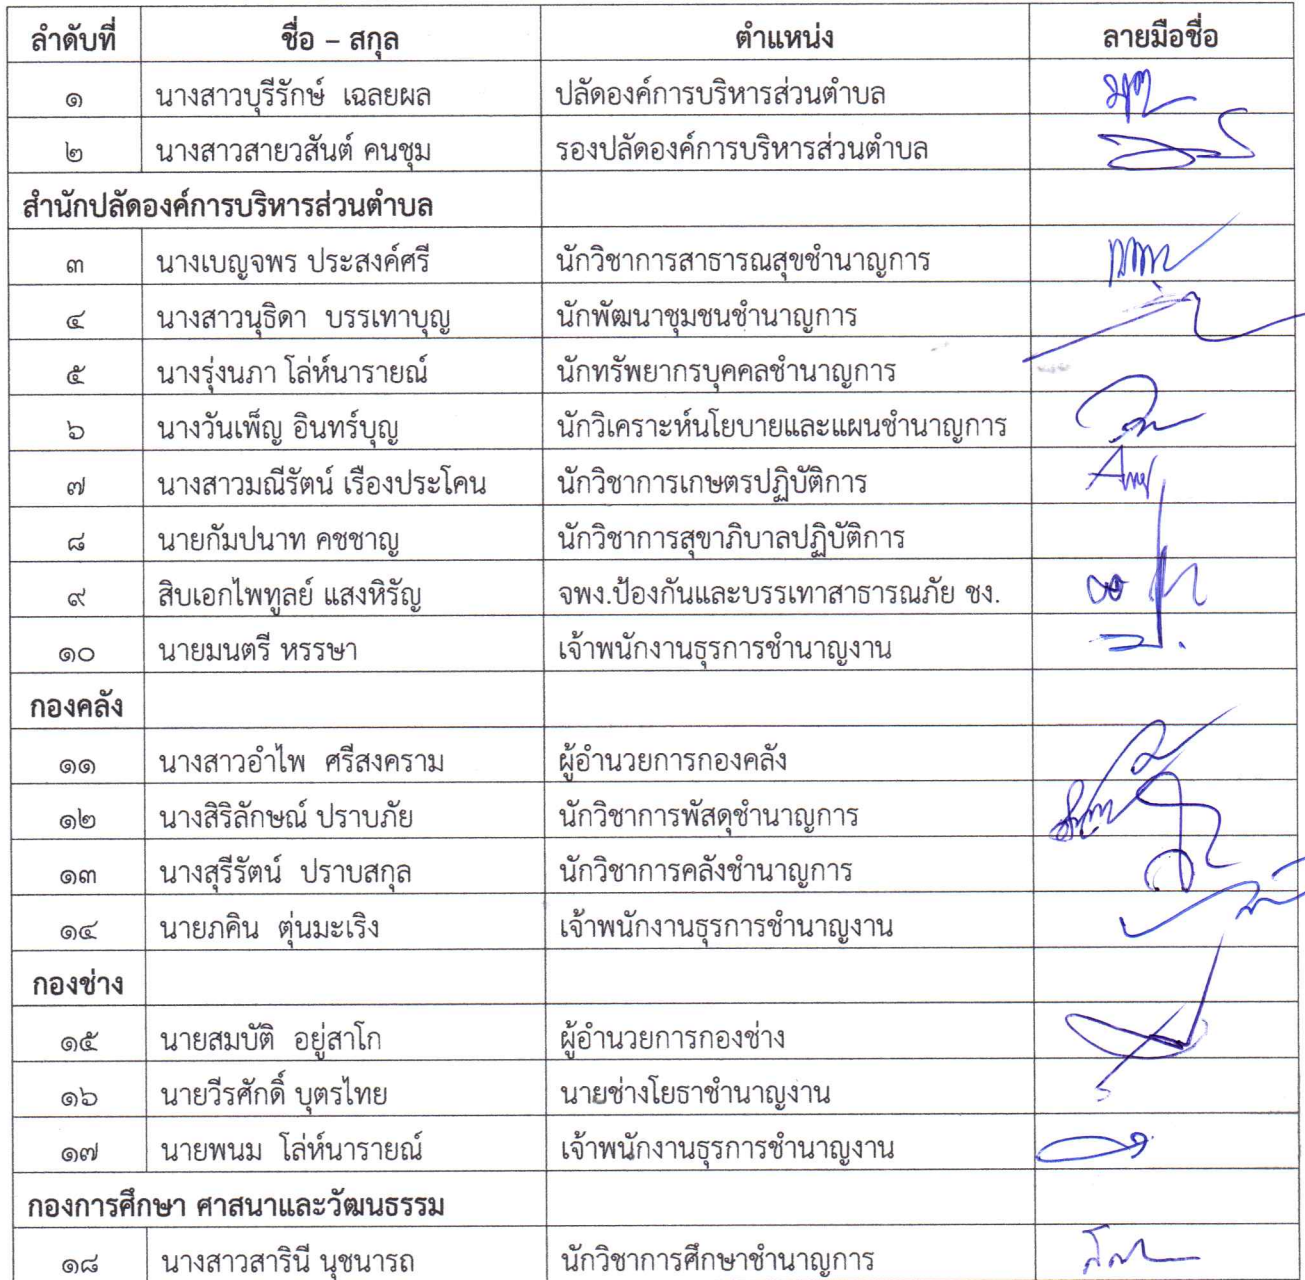 ลำดับที่ ชื่อ – สกุล ตำแหน่ง ลายมือชื่อ
๑ นางสาวบุรีรักษ์ เฉลยผล ปลัดองค์การบริหารส่วนตำบล
๒ นางสาวสายวสันต์ คนชุม รองปลัดองค์การบริหารส่วนตำบล
สำนักปลัดองค์การบริหารส่วนตำบล
๓ นางเบญจพร ประสงค์ศรี นักวิชาการสาธารณสุขชำนาญการ
๔ นางสาวนุธิดา บรรเทาบุญ นักพัฒนาชุมชนชำนาญการ
๕ นางรุ่งนภา โล่ห์นารายณ์ นักทรัพยากรบุคคลชำนาญการ
๖ นางวันเพ็ญ อินทร์บุญ นักวิเคราะห์นโยบายและแผนชำนาญการ
๗ นางสาวมณีรัตน์ เรืองประโคน นักวิชาการเกษตรปฏิบัติการ
๘ นายกัมปนาท คชชาญ นักวิชาการสุขาภิบาลปฏิบัติการ
๙ สิบเอกไพทูลย์ แสงหิรัญ จพง.ป้องกันและบรรเทาสาธารณภัย ชง.
๑๐ นายมนตรี หรรษา เจ้าพนักงานธุรการชำนาญงาน
กองคลัง
๑๑ นางสาวอำไพ ศรีสงคราม ผู้อำนวยการกองคลัง
๑๒ นางสิริลักษณ์ ปราบภัย นักวิชาการพัสดุชำนาญการ
๑๓ นางสุรีรัตน์ ปราบสกุล นักวิชาการคลังชำนาญการ
๑๔ นายภคิน ตุ่นมะเริง เจ้าพนักงานธุรการชำนาญงาน
กองช่าง
๑๕ นายสมบัติ อยู่สาโก ผู้อำนวยการกองช่าง
๑๖ นายวีรศักดิ์ บุตรไทย นายช่างโยธาชำนาญงาน
๑๗ นายพนม โล่ห์นารายณ์ เจ้าพนักงานธุรการชำนาญงาน
กองการศึกษา ศาสนาและวัฒนธรรม
๑๘ นางสาวสารินี นุชนารถ นักวิชาการศึกษาชำนาญการ